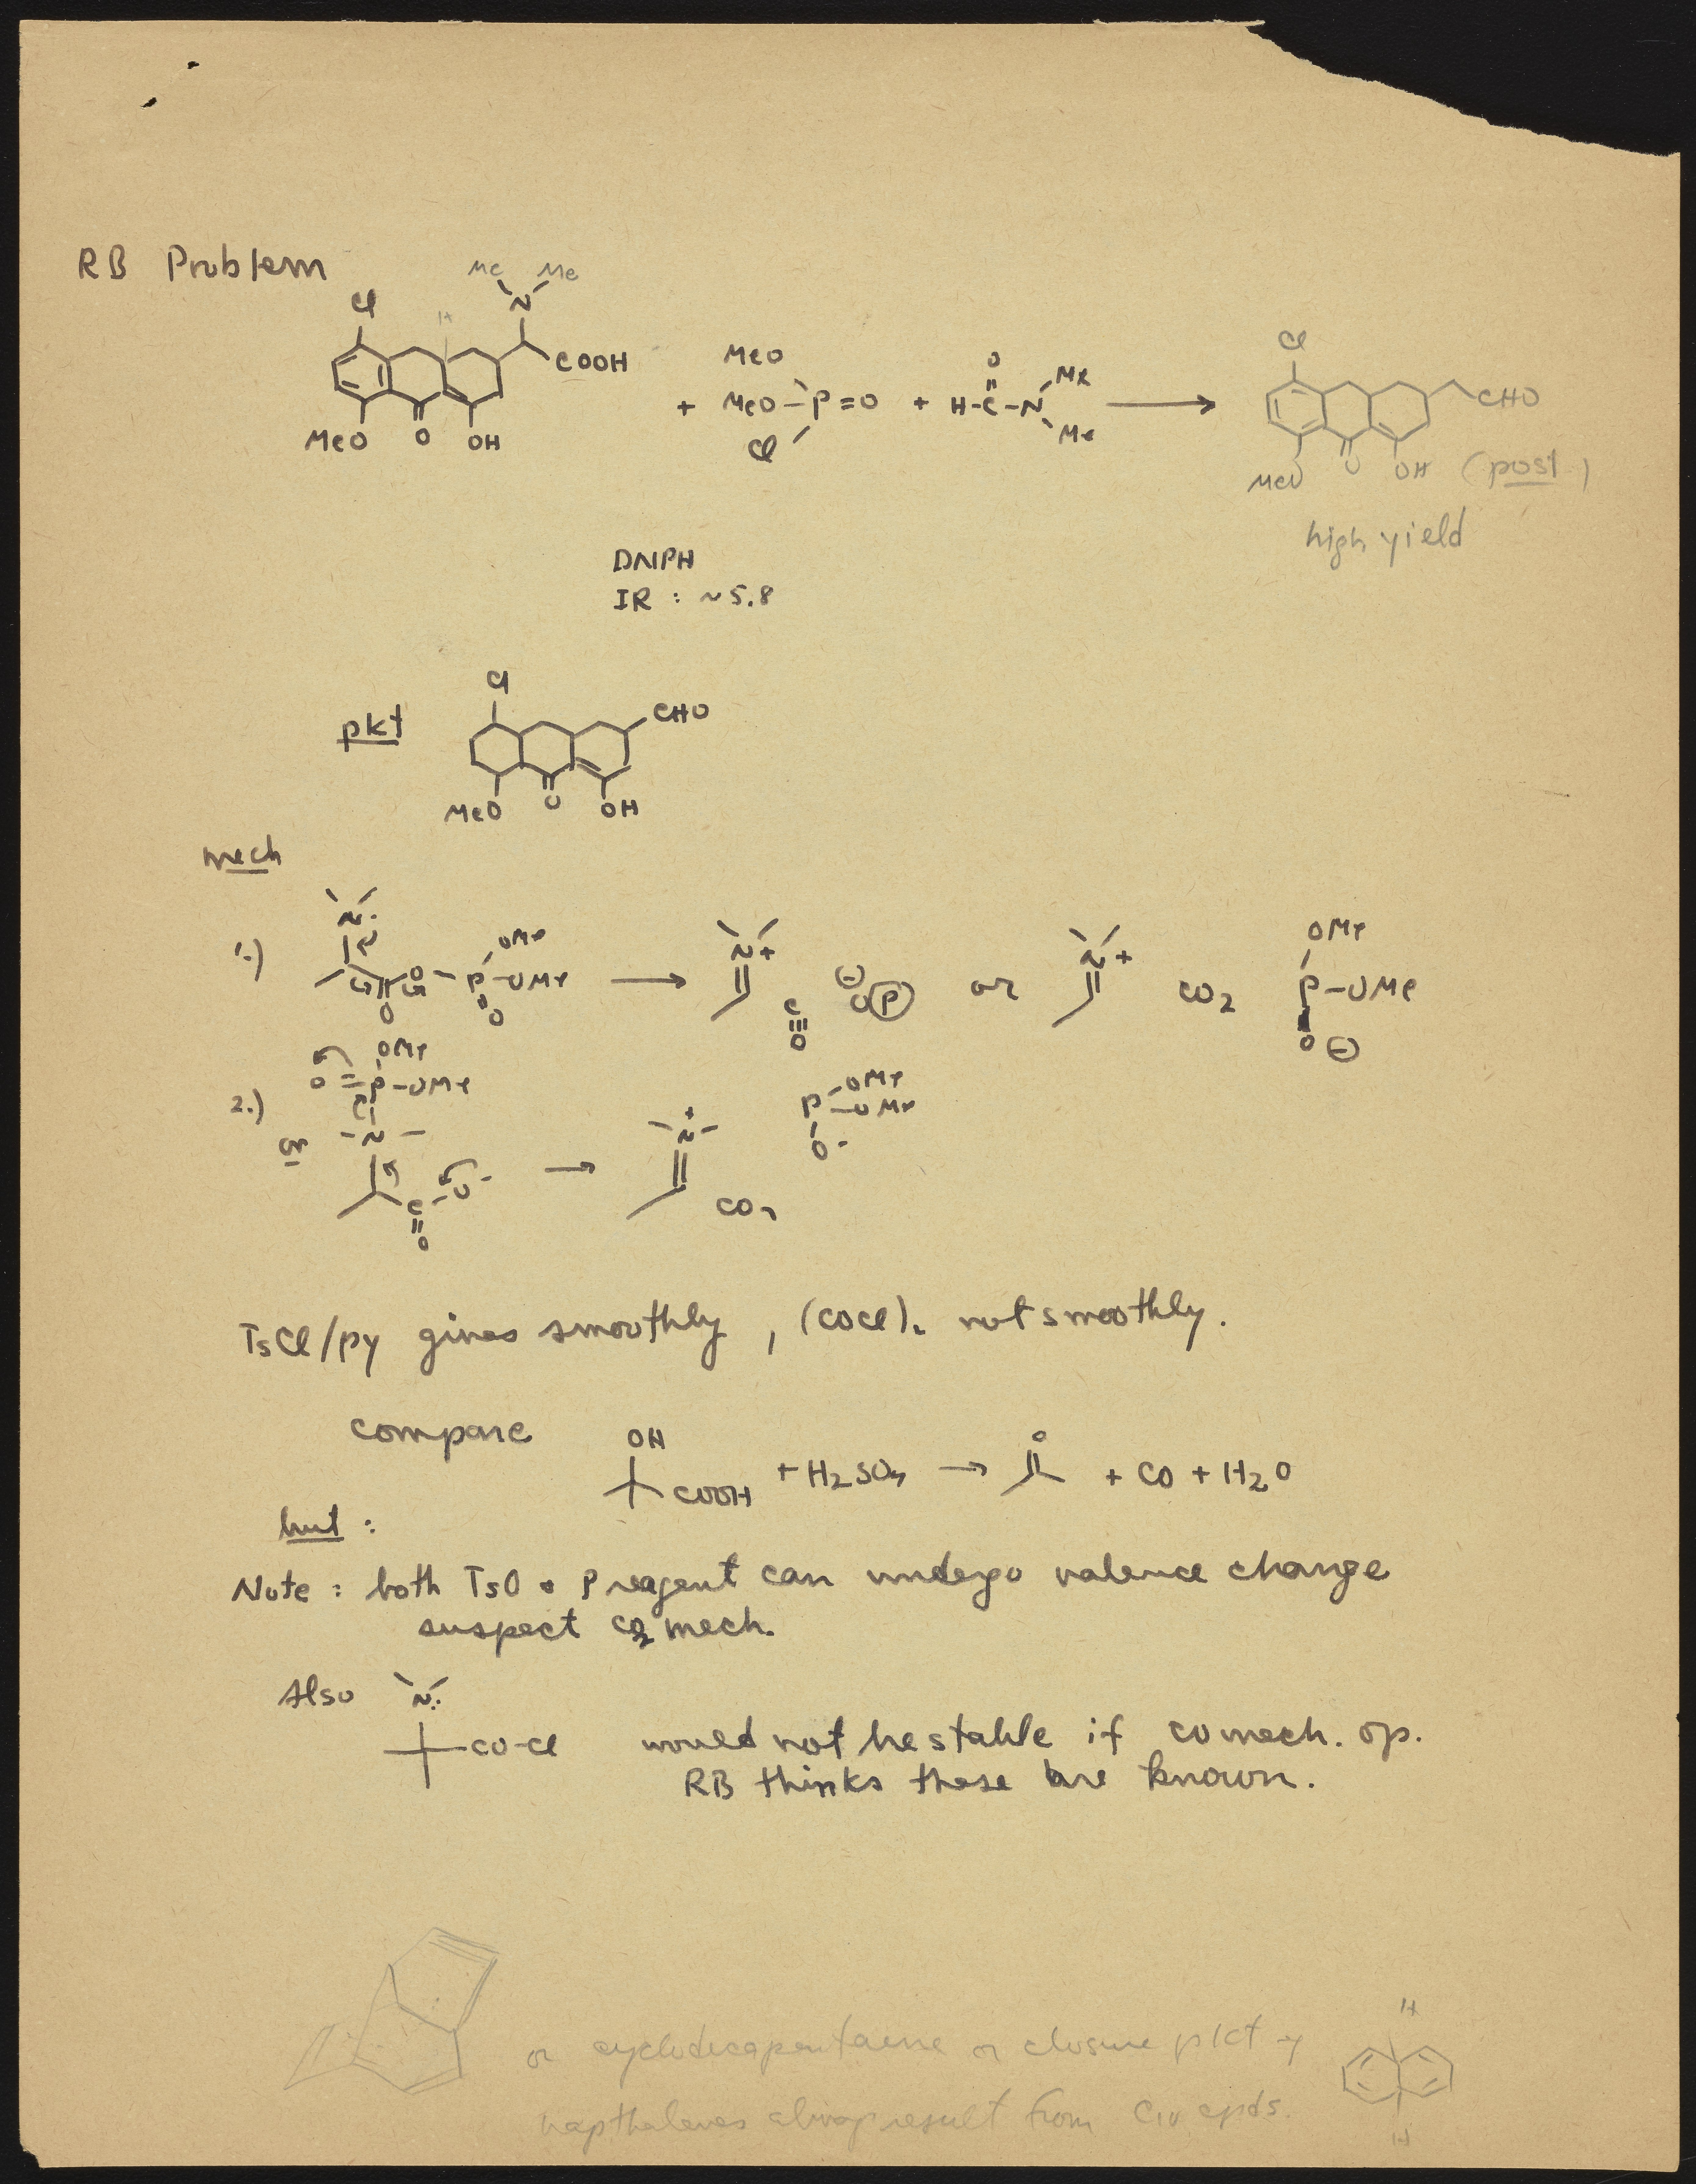 RB Problem
Me Me
N
Cl
H
COOH
MeO O OH
+
MeO
MeO-P=O
Cl
+
O
H-C-N
Me
Me
Cl
CHO
MeO O OH (post)
high yield
DNPH
IR : ~5.8
pkt
Cl
CHO
MeO O OH
mech
1.)
N:
O
O
P-OMe
OMe
O
N+
C≡O
⊖
O(P)
or
N+
CO2
OMe
P-OMe
O⊖
2.)
OMe
O=P-OMe
or
-N-
C-O-
O
+
-N-
CO2
OMe
P-OMe
O-
TsCl/py gives smoothly, (COCl)2 not smoothly.
compare
OH
COOH
+ H2SO4 → O + CO + H2O
but:
Note: both TsO & P reagent can undergo valence change
suspect CO2 mech.
Also
N:
CO-Cl
would not be stable if CO mech. op.
RB thinks these are known.
or cyclodecapentaene or closure pkt
H
napthalenes result from C10 cpds.
H